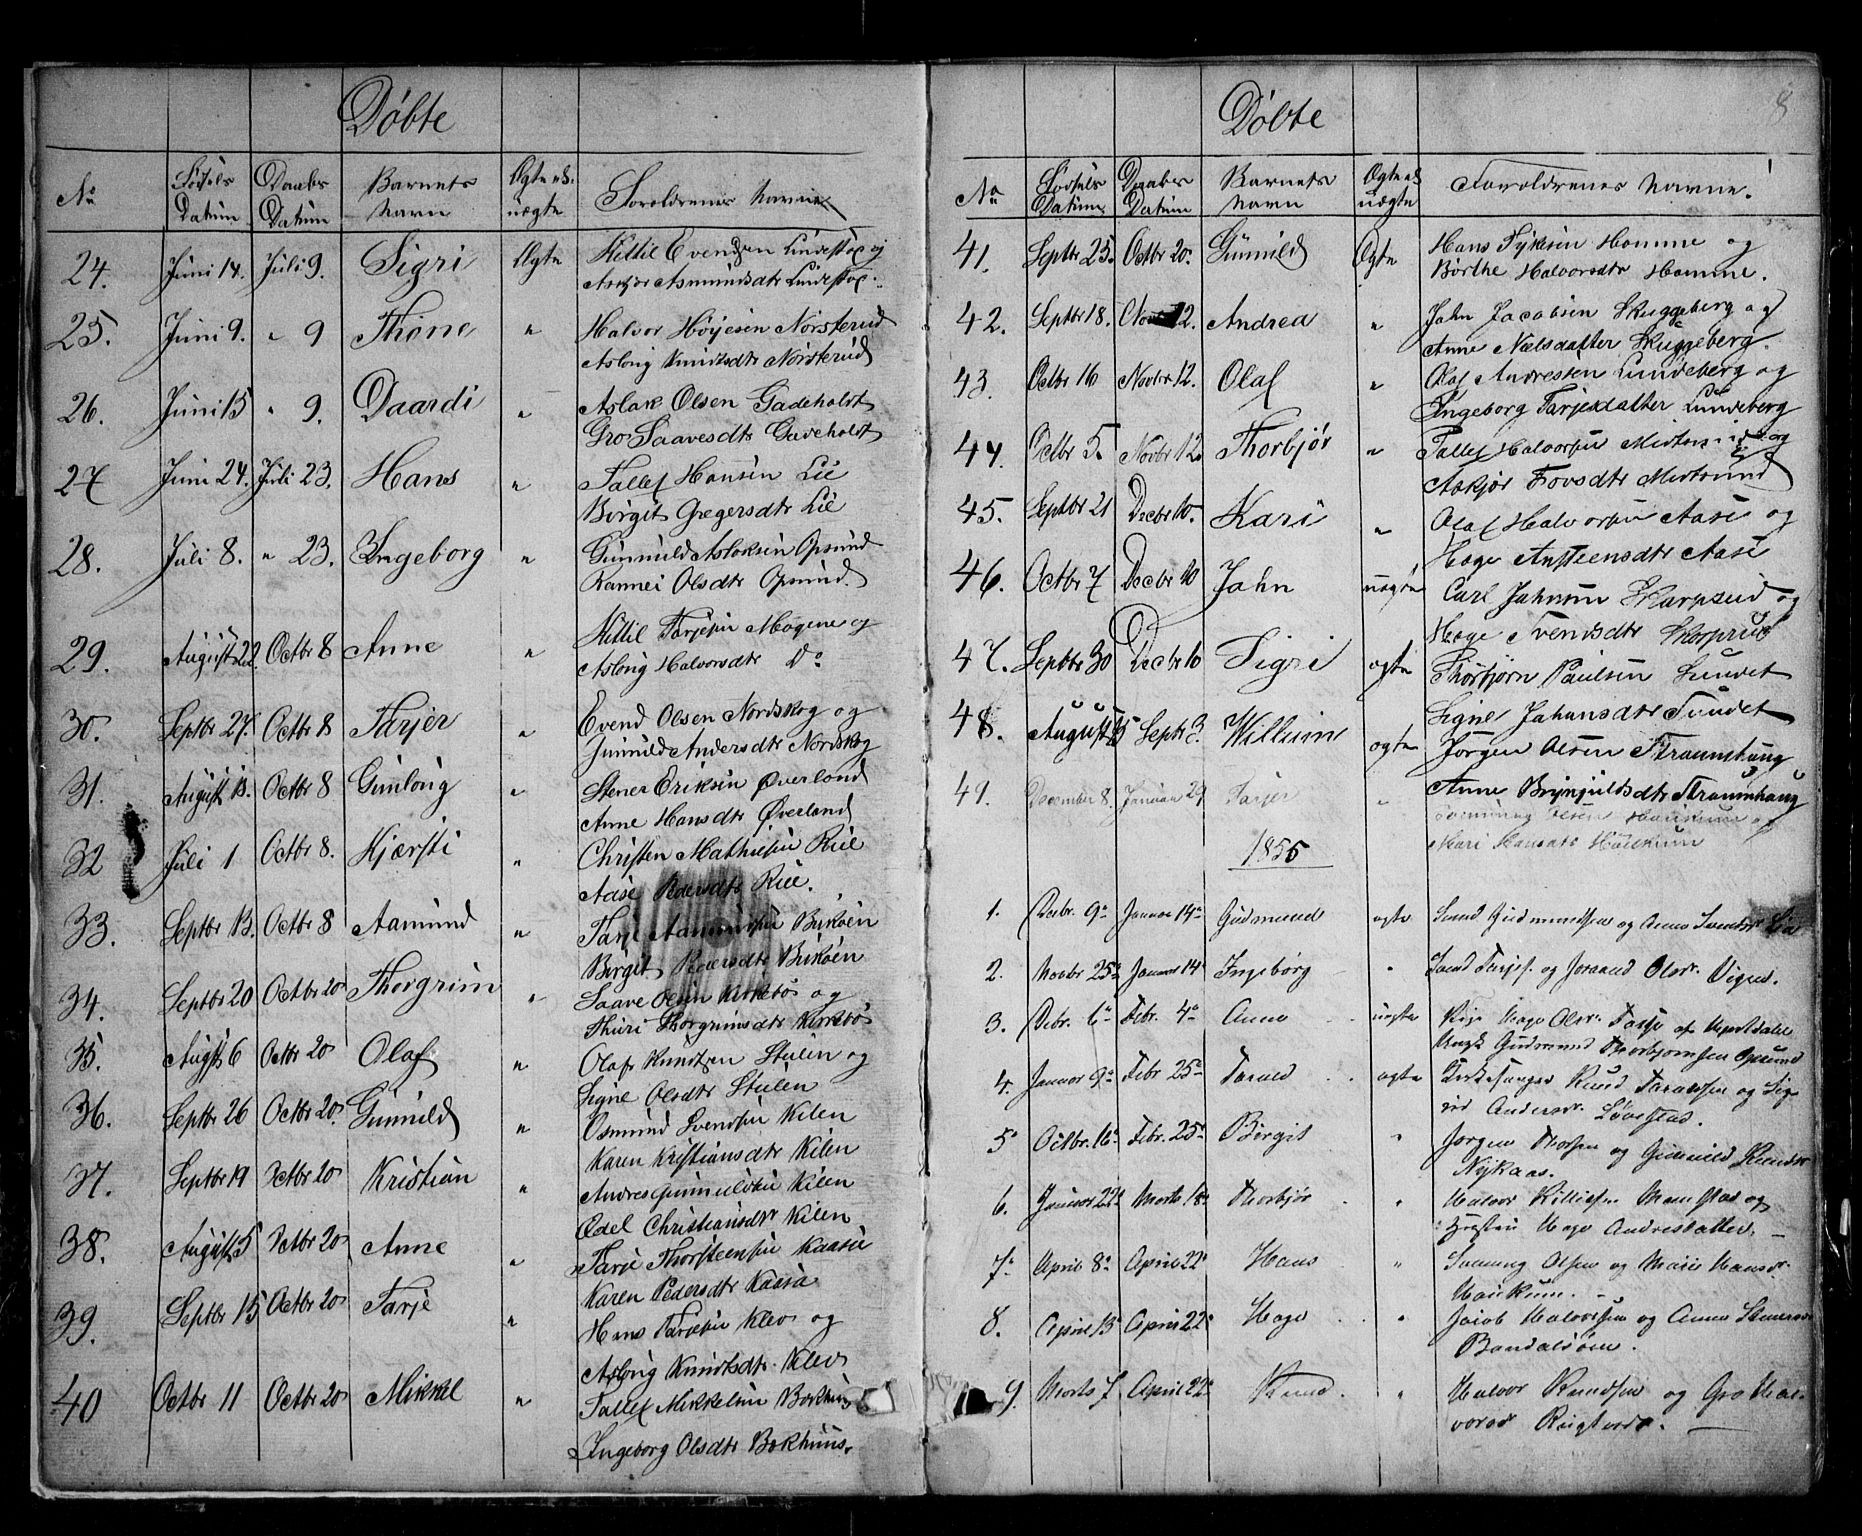 Döbte
No Födsels Datum Daabs Datum Barnets Navn Ægte el. uægte Forældrenes Navne
24. Juni 14. Juli 9. Sigri Ægte Kittil Evendsen Lindestøe og
Askjer Asmundsdtr Lindestøe
25. Juni 9. " 9 Thone " Halvor Höÿesen Nørsterud
Aslöug Knudtsdtr Nørsterud
26. Juni 15 " 9. Daardi " Aslak Olsen Gadeholt
Gro Saavesdtr Gadeholt
27 Juni 24. Juli 23. Hans " Tallef Hansen Lie
Birgit Gregersdtr Lie
28. Juli 8. " 23. Ingeborg " Gunnuld Aslaksen Opsund
Rannei Olsdtr Opsund.
29. August 22. Octbr 8 Anne " Kittil Tarjesen Mogene og
Aslöug Halvorsdtr Do
30. Septbr 27. Octbr 8 Tarjer " Evend Olsen Nordskog og
Gunnild Andersdtr Nordskog
31. August 13. Octbr 8 Gunlöug " Stener Eriksen Øverland
Anne Hansdtr Øverland
32 Juli 1 Octbr 8. Kjærsti " Christen Mathisen Riie
Aase Pedersdtr Riie.
33. Septbr 13. Octbr 8 Aamund " Tarje Aamundsen Vrkøen
Birgit Pedersdtr
34. Septbr 20 Octbr 20 Thorgrim " Saave Olsen Kirkebø og
Thuri Thorgrimsdtr Kirkebø
35. Augst 6 Octbr 20 Olaf " Olaf Knudtzen Stulen og
Signe Olsdtr Stulen
36. Septbr 26 Octbr 20. Gunnild " Osmund Svendsen Kilen
Karen Kristiansdtr Kilen
37. Septbr 19 Octbr 20 Kristian " Andres Gunnuldsen Kilen
Edel Christiansdtr Kilen
38. August 5 Octbr 20 Anne " Tarje Thorsteensen Kaasa
Karen Pedersdtr Kaasa
39. Septbr 15 Octbr 20 Tarje " Hans Tarjesen Klev og
Aslöug Knudtsdtr. Klev
40 Octbr 11 Octbr 20 Mikkel " Tallef Mikkelsen Barkhuus
Ingeborg Olsdtr Barkhuus.
Döbte 8
No Födsels Datum Daabs Datum Barnets Navn Ægte el. uægte Forældrenes Navne.
41. Septbr 25. Octbr 20. Gunnild Ægte Hans Tÿksen Homme og
Börthe Halvorsdtr Homme.
42. Septbr 18. Novbr 12. Andrea " Jahn Jacobsen Skuggeberg og
Anne Nælsdatter Skuggeberg.
43. Octbr 16 Novbr 12. Olaf " Olaf Andressen Lundeberg og
Ingeborg Tarjesdatter Lundeberg
44. Octbr 5. Novbr 12. Thorbjør " Tallef Halvorsen Midtsund og
Askjør Tovsdtr Midtsund
45. Septbr 21 Decbr 10. Kari " Olaf Halvorsen Aase og
Hæge Ansteensdtr Aase
46. Octbr 7 Decbr 10 Jahn uægte Carl Jahnsen Skarprud og
Hæge Svendsdtr Skarprud
47. Septbr 30 Decbr 10 Sigri ægte Thorbjørn Paulsen Sundet
Signe Johansdtr Sundet
48. August 15 Septbr 3. Willum ægte Jørgen Olsen Straumhaug
Anne Brÿnjulfsdtr Straumhaug
49. December 8. Januar 29 Tarjer " Svennung Olsen Haukum og
Mari Hansdtr Haukum
1855
1. Decbr. 9de Januar 14de Gudmund ægte Svend Gudmundsen og Anne Svendsdr Lia
2. Novbr 25de Januar 14de Ingebörg " Svend Tarjes. og Joraand Olsdr. Vigens.
3. Debr. 6te Febr. 4de Anne uægte Pige Hæge Olsdr. Tasse af Hvitdahl
Ungk Gudmund Thorbjørnsen Opsund
4. Januar 9de Febr. 25de Tarald ægte Kirkesanger Knud Taraldsen og Sig-
rid Andersdr. Løvestad.
5 Octbr. 16de Febr. 25de Birgit " Jørgen Thorsen og Gunnild Knudsdr
Nykaas.
6. Januar 22de Marts 18de Thorbjør " Halvor Killisen Momstad og
Hæge Andresdatter.
7 April 8de April 22de Hans " Svenung Olsen og Mari Hansdr.
Haukum.
8. April 15 April 22de Hæge " Jacob Halvorsen og Anne Stenersdr
Bandalsöen.
9. Marts 7 April 22de Knud " Halvor Knudsen og Gro Hal-
vorsdr